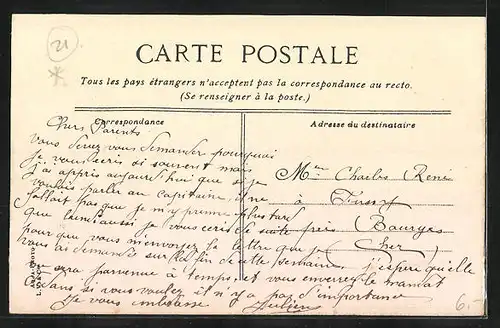 21
CARTE POSTALE
Tous les pays étrangers n'acceptent pas la correspondance au recto.
(Se renseigner à la poste.)
Correspondance
Adresse du destinataire
Chers Parents
Vous devez vous demander pourquoi
je vous écris si souvent mais
j'ai appris aujourd'hui que si je
voulais parler au capitaine, il ne
fallait pas que je m'y prenne plus tard
que lundi aussi je vous écris de suite
pour que vous m'envoyez la lettre que je
vous ai demandée sur la fin de cette semaine j'espère qu'elle
sera parvenue à temps, et vous enverrez le mandat
dans si vous voulez il n'y a pas d'importance
Je vous embrasse
Lucien
Mr Charles René
à
près Bourges
(Cher)
6.-